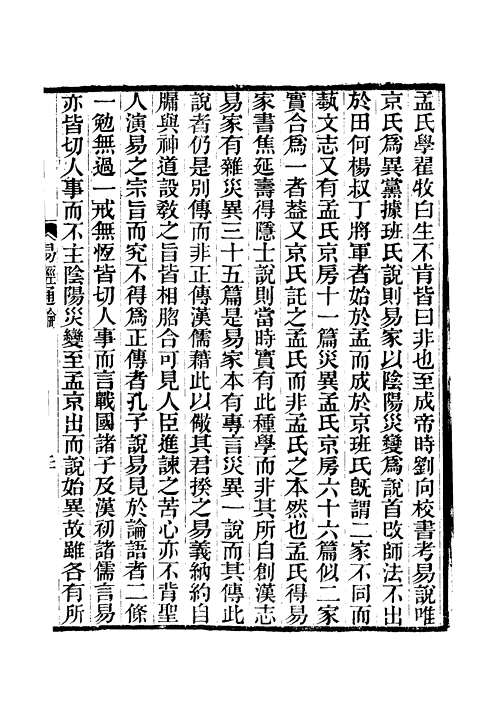 孟氏學翟牧白生不肯皆曰非也至成帝時劉向校書考易說唯
京氏爲異黨據班氏說則易家以陰陽災變爲說首改師法不出
於田何楊叔丁將軍者始於孟而成於京班氏旣謂二家不同而
藝文志又有孟氏京房十一篇災異孟氏京房六十六篇似二家
實合爲一者葢又京氏託之孟氏而非孟氏之本然也孟氏得易
家書焦延壽得隱士說則當時實有此種學而非其所自創漢志
易家有雜災異三十五篇是易家本有專言災異一說而其傳此
說者仍是別傳而非正傳漢儒藉此以儆其君揆之易義納約自
牖與神道設敎之旨皆相脗合可見人臣進諫之苦心亦不背聖
人演易之宗旨而究不得爲正傳者孔子說易見於論語者二條
一勉無過一戒無恆皆切人事而言戰國諸子及漢初諸儒言易
亦皆切人事而不主陰陽災變至孟京出而說始異故雖各有所
易經通論